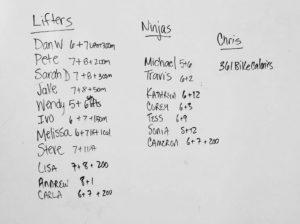 Lifters
Dan W 6+7
Pete 7+8+200m
Sarah D 7+8+300m
Jake 7+8+50m
Wendy 5+6
Ivo 6+7+150m
Melissa 6+7
Steve 7+11
Lisa 7+8+200
Andrew 8+1
Carla 6+7+200
Ninjas
Michael 5+6
Travis 6+2
Kathryn 6+12
Corey 6+3
Tess 6+9
Sonia 5+12
Cameron 6+7+200
Chris
361 Bike Calories